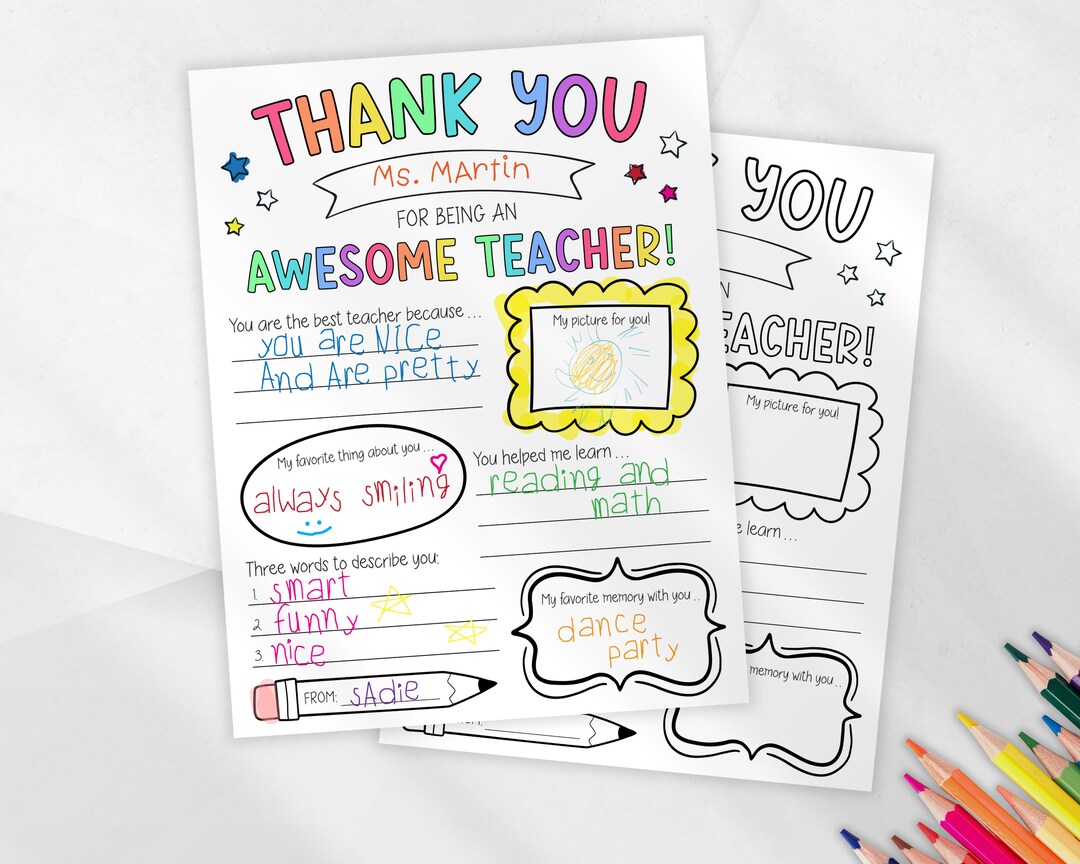 THANK YOU
Ms. MArtin
FOR BEING AN
AWESOME TEACHER!
You are the best teacher because ...
you are NICe
And Are pretty
My picture for you!
My favorite thing about you ...
always smiling
You helped me learn ...
reading and
math
Three words to describe you:
1. smart
2. funny
3. nice
My favorite memory with you ..
dance
party
FROM: sAdie
YOU
N
TEACHER!
My picture for you!
e learn ...
memory with you ..